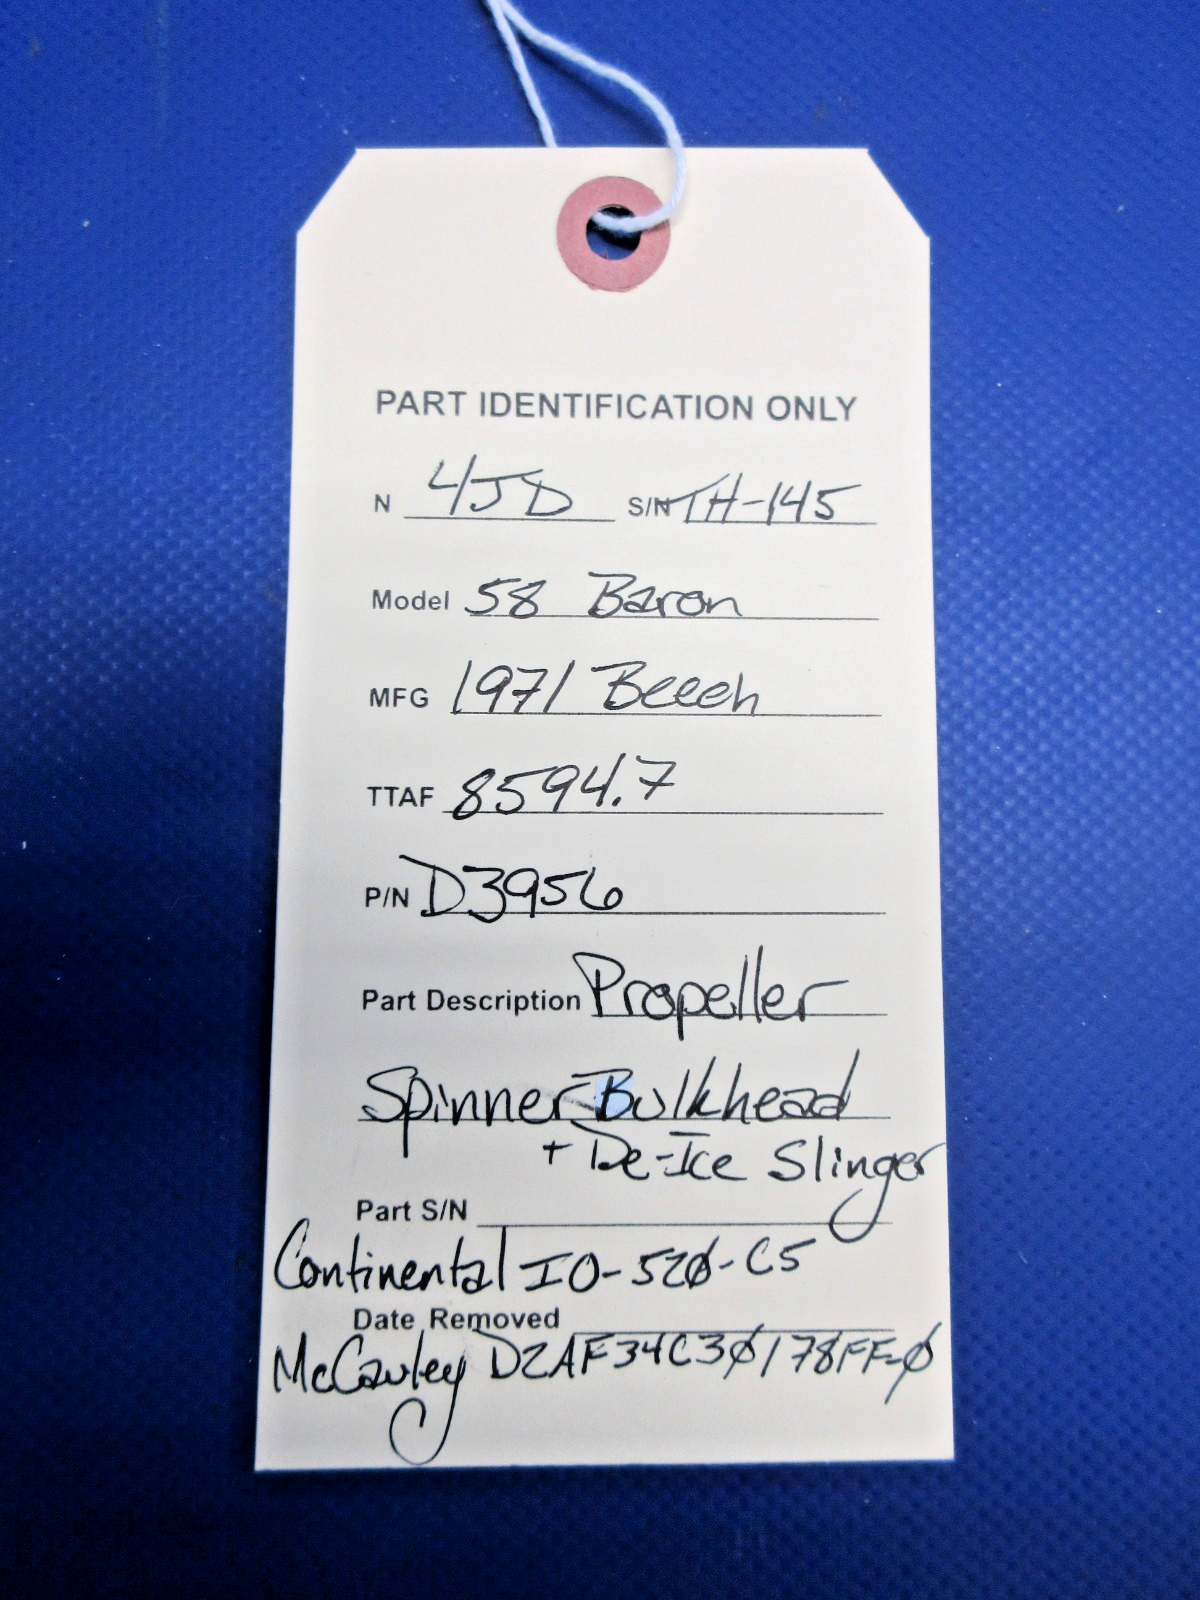 PART IDENTIFICATION ONLY
N 4JD S/N TH-145
Model 58 Baron
MFG 1971 Beech
TTAF 8594.7
P/N D3956
Part Description Propeller
Spinner Bulkhead
+ De-Ice Slinger
Part S/N
Continental IO-520-C5
Date Removed
McCauley D2AF34C30/78FF-0